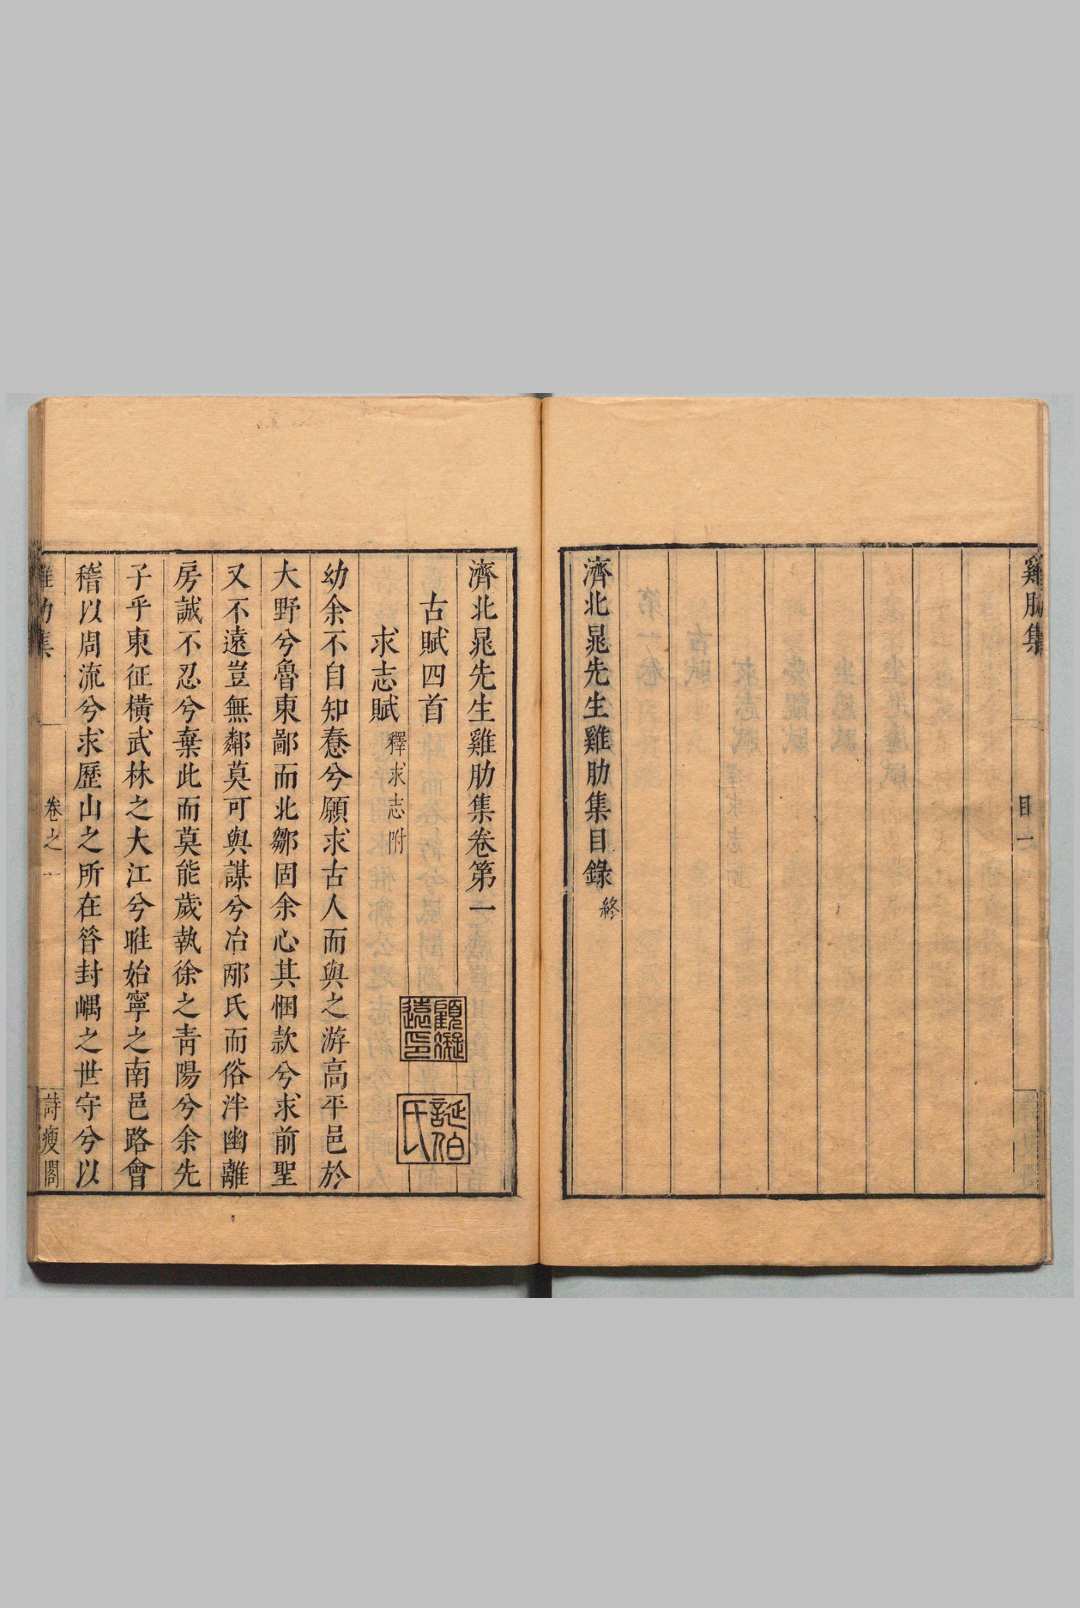 雞肋集
目一
濟北晁先生雞肋集目錄 終
濟北晁先生雞肋集卷第一
古賦四首
求志賦 釋求志附
幼余不自知惷兮願求古人而與之游高平邑於
大野兮魯東鄙而北鄒固余心其悃款兮求前聖
又不遠豈無鄰莫可與謀兮冶邴氏而俗泮幽離
房誠不忍兮棄此而莫能歲執徐之青陽兮余先
子乎東征橫武林之大江兮暀始寧之南邑路會
稽以周流兮求歷山之所在㫺封嵎之世守兮以
雞肋集
卷之一
詩瘦閣
顧凝遠印
誕伯氏